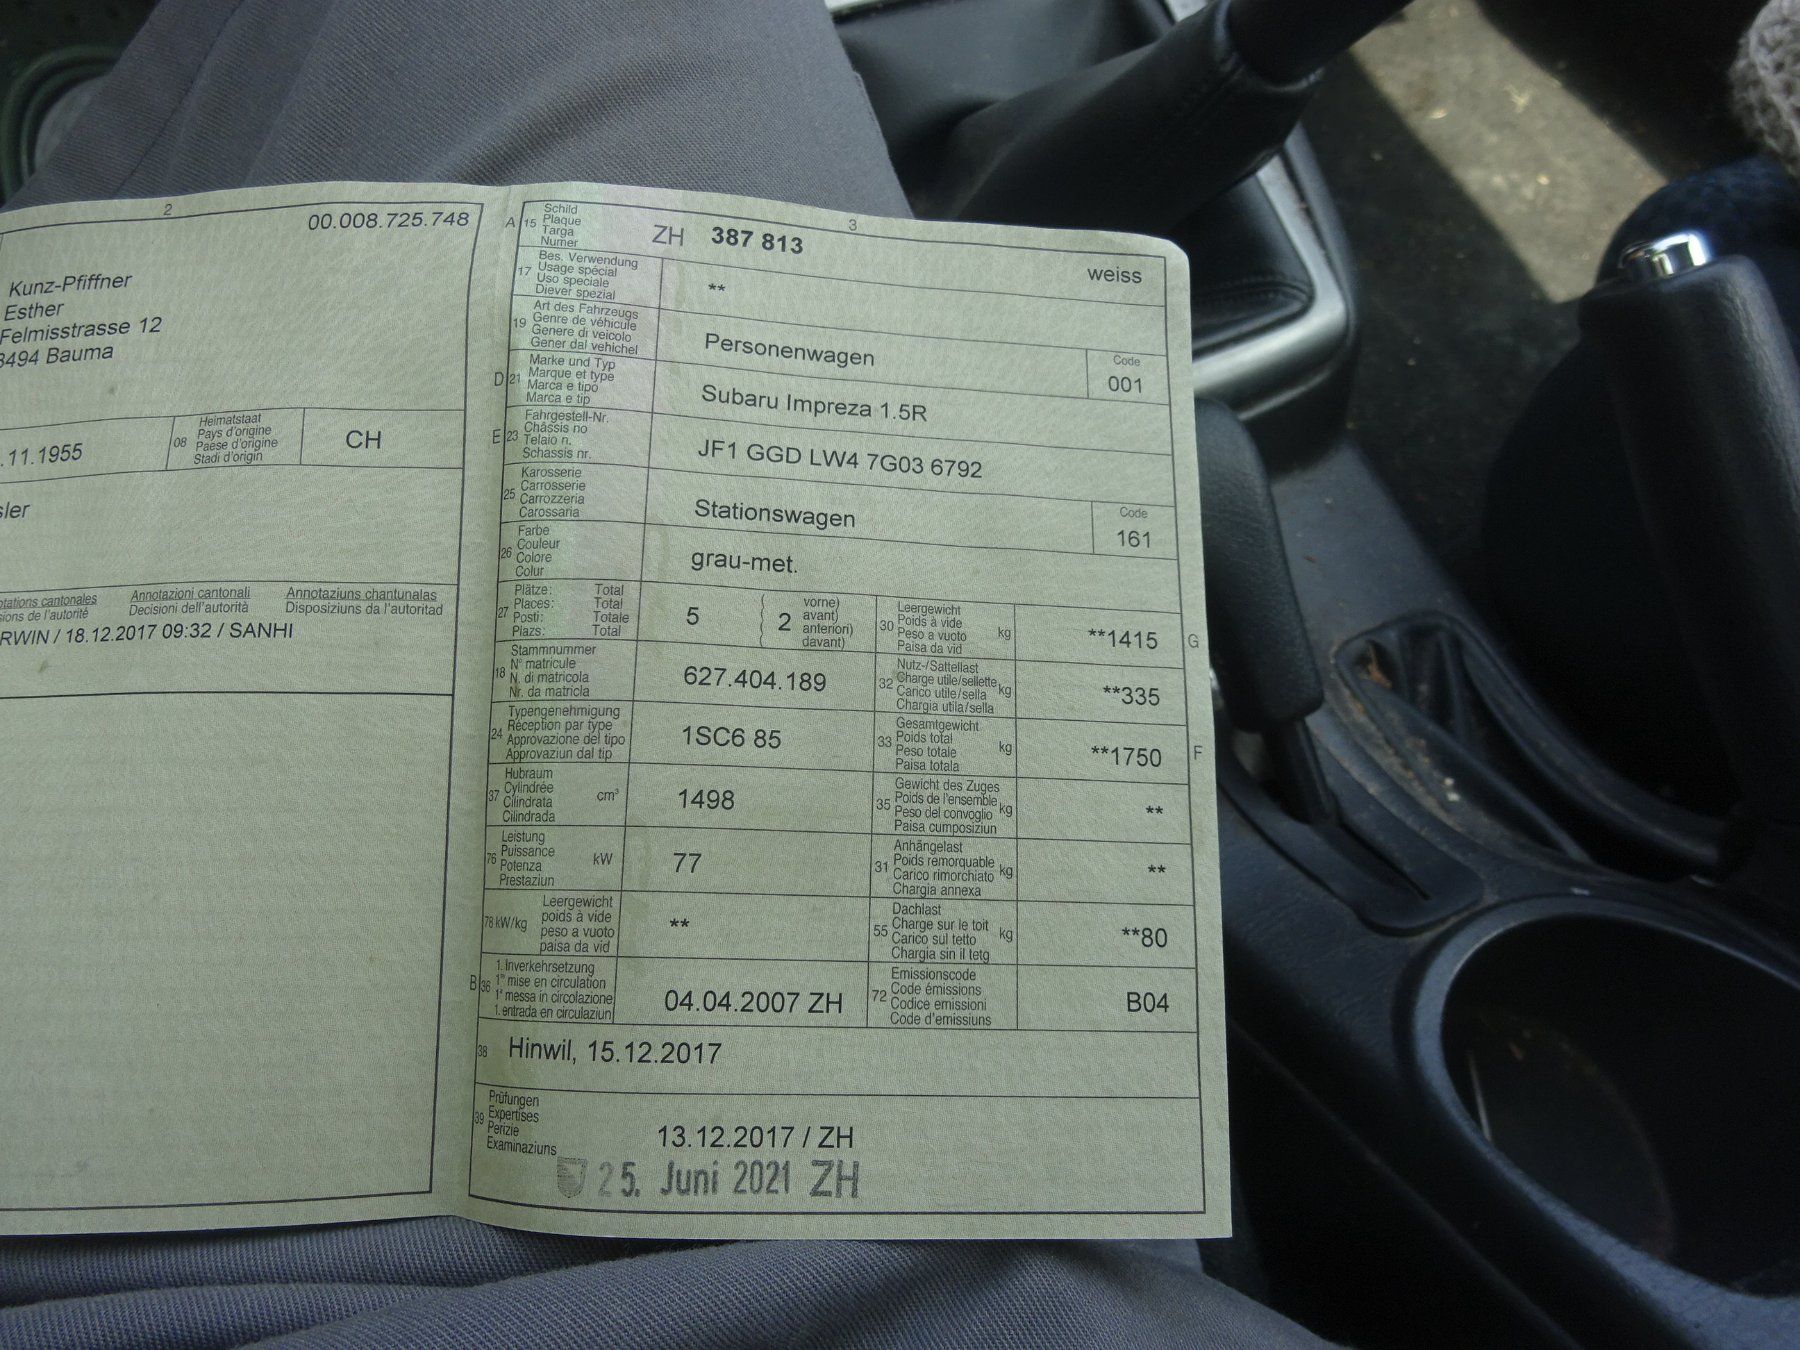 2
00.008.725.748
Kunz-Pfiffner
Esther
Felmisstrasse 12
8494 Bauma
.11.1955
08
Heimatstaat
Pays d'origine
Paese d'origine
Stadi d'origin
CH
sler
Annotazioni cantonali
Annotaziuns chantunalas
Decisioni dell'autorità
Disposiziuns da l'autoritad
RWIN / 18.12.2017 09:32 / SANHI
3
A
15
Schild
Plaque
Targa
Numer
ZH 387 813
weiss
17
Bes. Verwendung
Usage spécial
Uso speciale
Diever spezial
**
19
Art des Fahrzeugs
Genre de véhicule
Genere di veicolo
Gener dal vehichel
Personenwagen
Code
001
D
21
Marke und Typ
Marque et type
Marca e tipo
Marca e tip
Subaru Impreza 1.5R
E
23
Fahrgestell-Nr.
Châssis no
Telaio n.
Schassis nr.
JF1 GGD LW4 7G03 6792
25
Karosserie
Carrosserie
Carrozzeria
Carossaria
Stationswagen
Code
161
26
Farbe
Couleur
Colore
Colur
grau-met.
27
Plätze: Total
Places: Total
Posti: Totale
Plazs: Total
5
2
vorne)
avant)
anteriori)
davant)
30
Leergewicht
Poids à vide
Peso a vuoto
Paisa da vid
kg
**1415
G
18
Stammnummer
N° matricule
N. di matricola
Nr. da matricla
627.404.189
32
Nutz-/Sattellast
Charge utile/sellette
Carico utile/sella
Chargia utila/sella
kg
**335
24
Typengenehmigung
Réception par type
Approvazione del tipo
Approvaziun dal tip
1SC6 85
33
Gesamtgewicht
Poids total
Peso totale
Paisa totala
kg
**1750
F
37
Hubraum
Cylindrée
Cilindrata
Cilindrada
cm³
1498
35
Gewicht des Zuges
Poids de l'ensemble
Peso del convoglio
Paisa cumposiziun
kg
**
76
Leistung
Puissance
Potenza
Prestaziun
kW
77
31
Anhängelast
Poids remorquable
Carico rimorchiato
Chargia annexa
kg
**
78 kW/kg
Leergewicht
poids à vide
peso a vuoto
paisa da vid
**
55
Dachlast
Charge sur le toit
Carico sul tetto
Chargia sin il tetg
kg
**80
B
36
1. Inverkehrsetzung
1re mise en circulation
1a messa in circolazione
1. entrada en circulaziun
04.04.2007 ZH
72
Emissionscode
Code émissions
Codice emissioni
Code d'emissiuns
B04
38
Hinwil, 15.12.2017
39
Prüfungen
Expertises
Perizie
Examinaziuns
13.12.2017 / ZH
25. Juni 2021 ZH